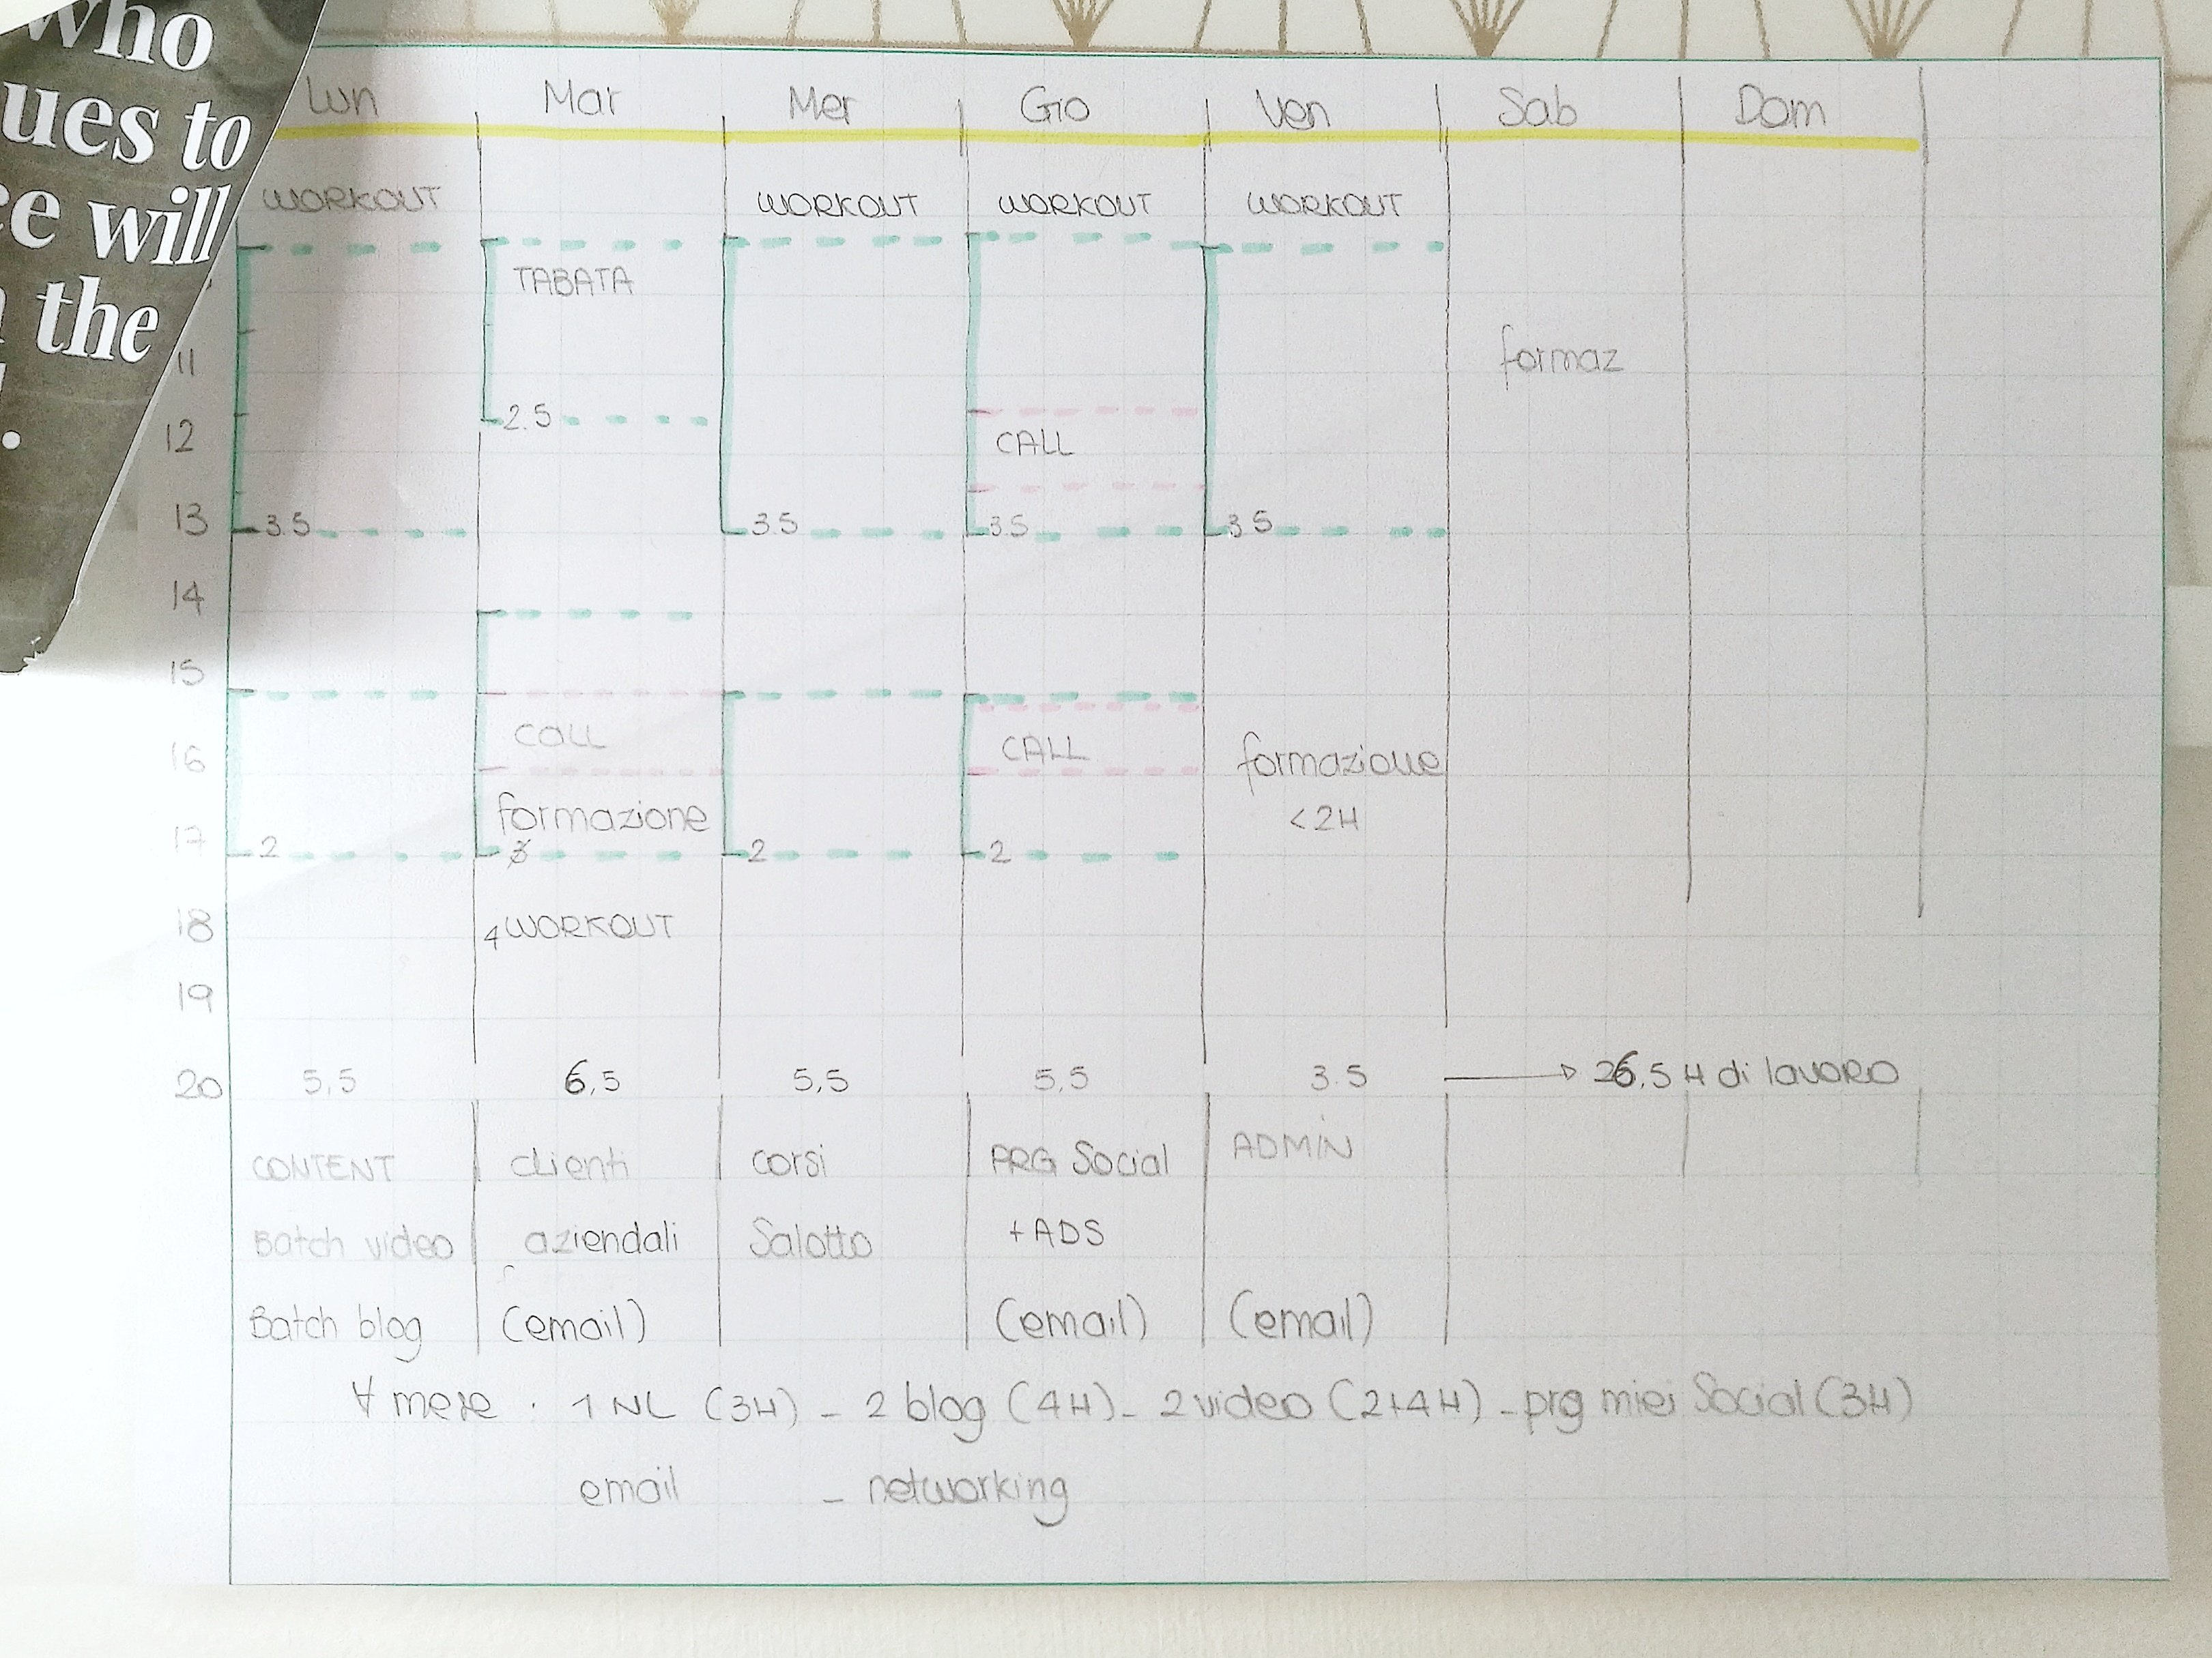 who
ues to
ce will
the
Lun Mar Mer Gio Ven Sab Dom
WORKOUT WORKOUT WORKOUT WORKOUT
TABATA
11 formaz
12 2.5 CALL
13 3.5 3.5 3.5 3.5
14
15
16 CALL CALL formazione
formazione <2H
17 2 3 2 2
18 4 WORKOUT
19
20 5,5 6,5 5,5 5,5 3.5 → 26,5 H di lavoro
CONTENT clienti corsi PRG Social ADMIN
Batch video aziendali Salotto +ADS
Batch blog (email) (email) (email)
∀ mese · 1 NL (3H) - 2 blog (4H) - 2 video (2+4H) - prg miei Social (3H)
email - networking